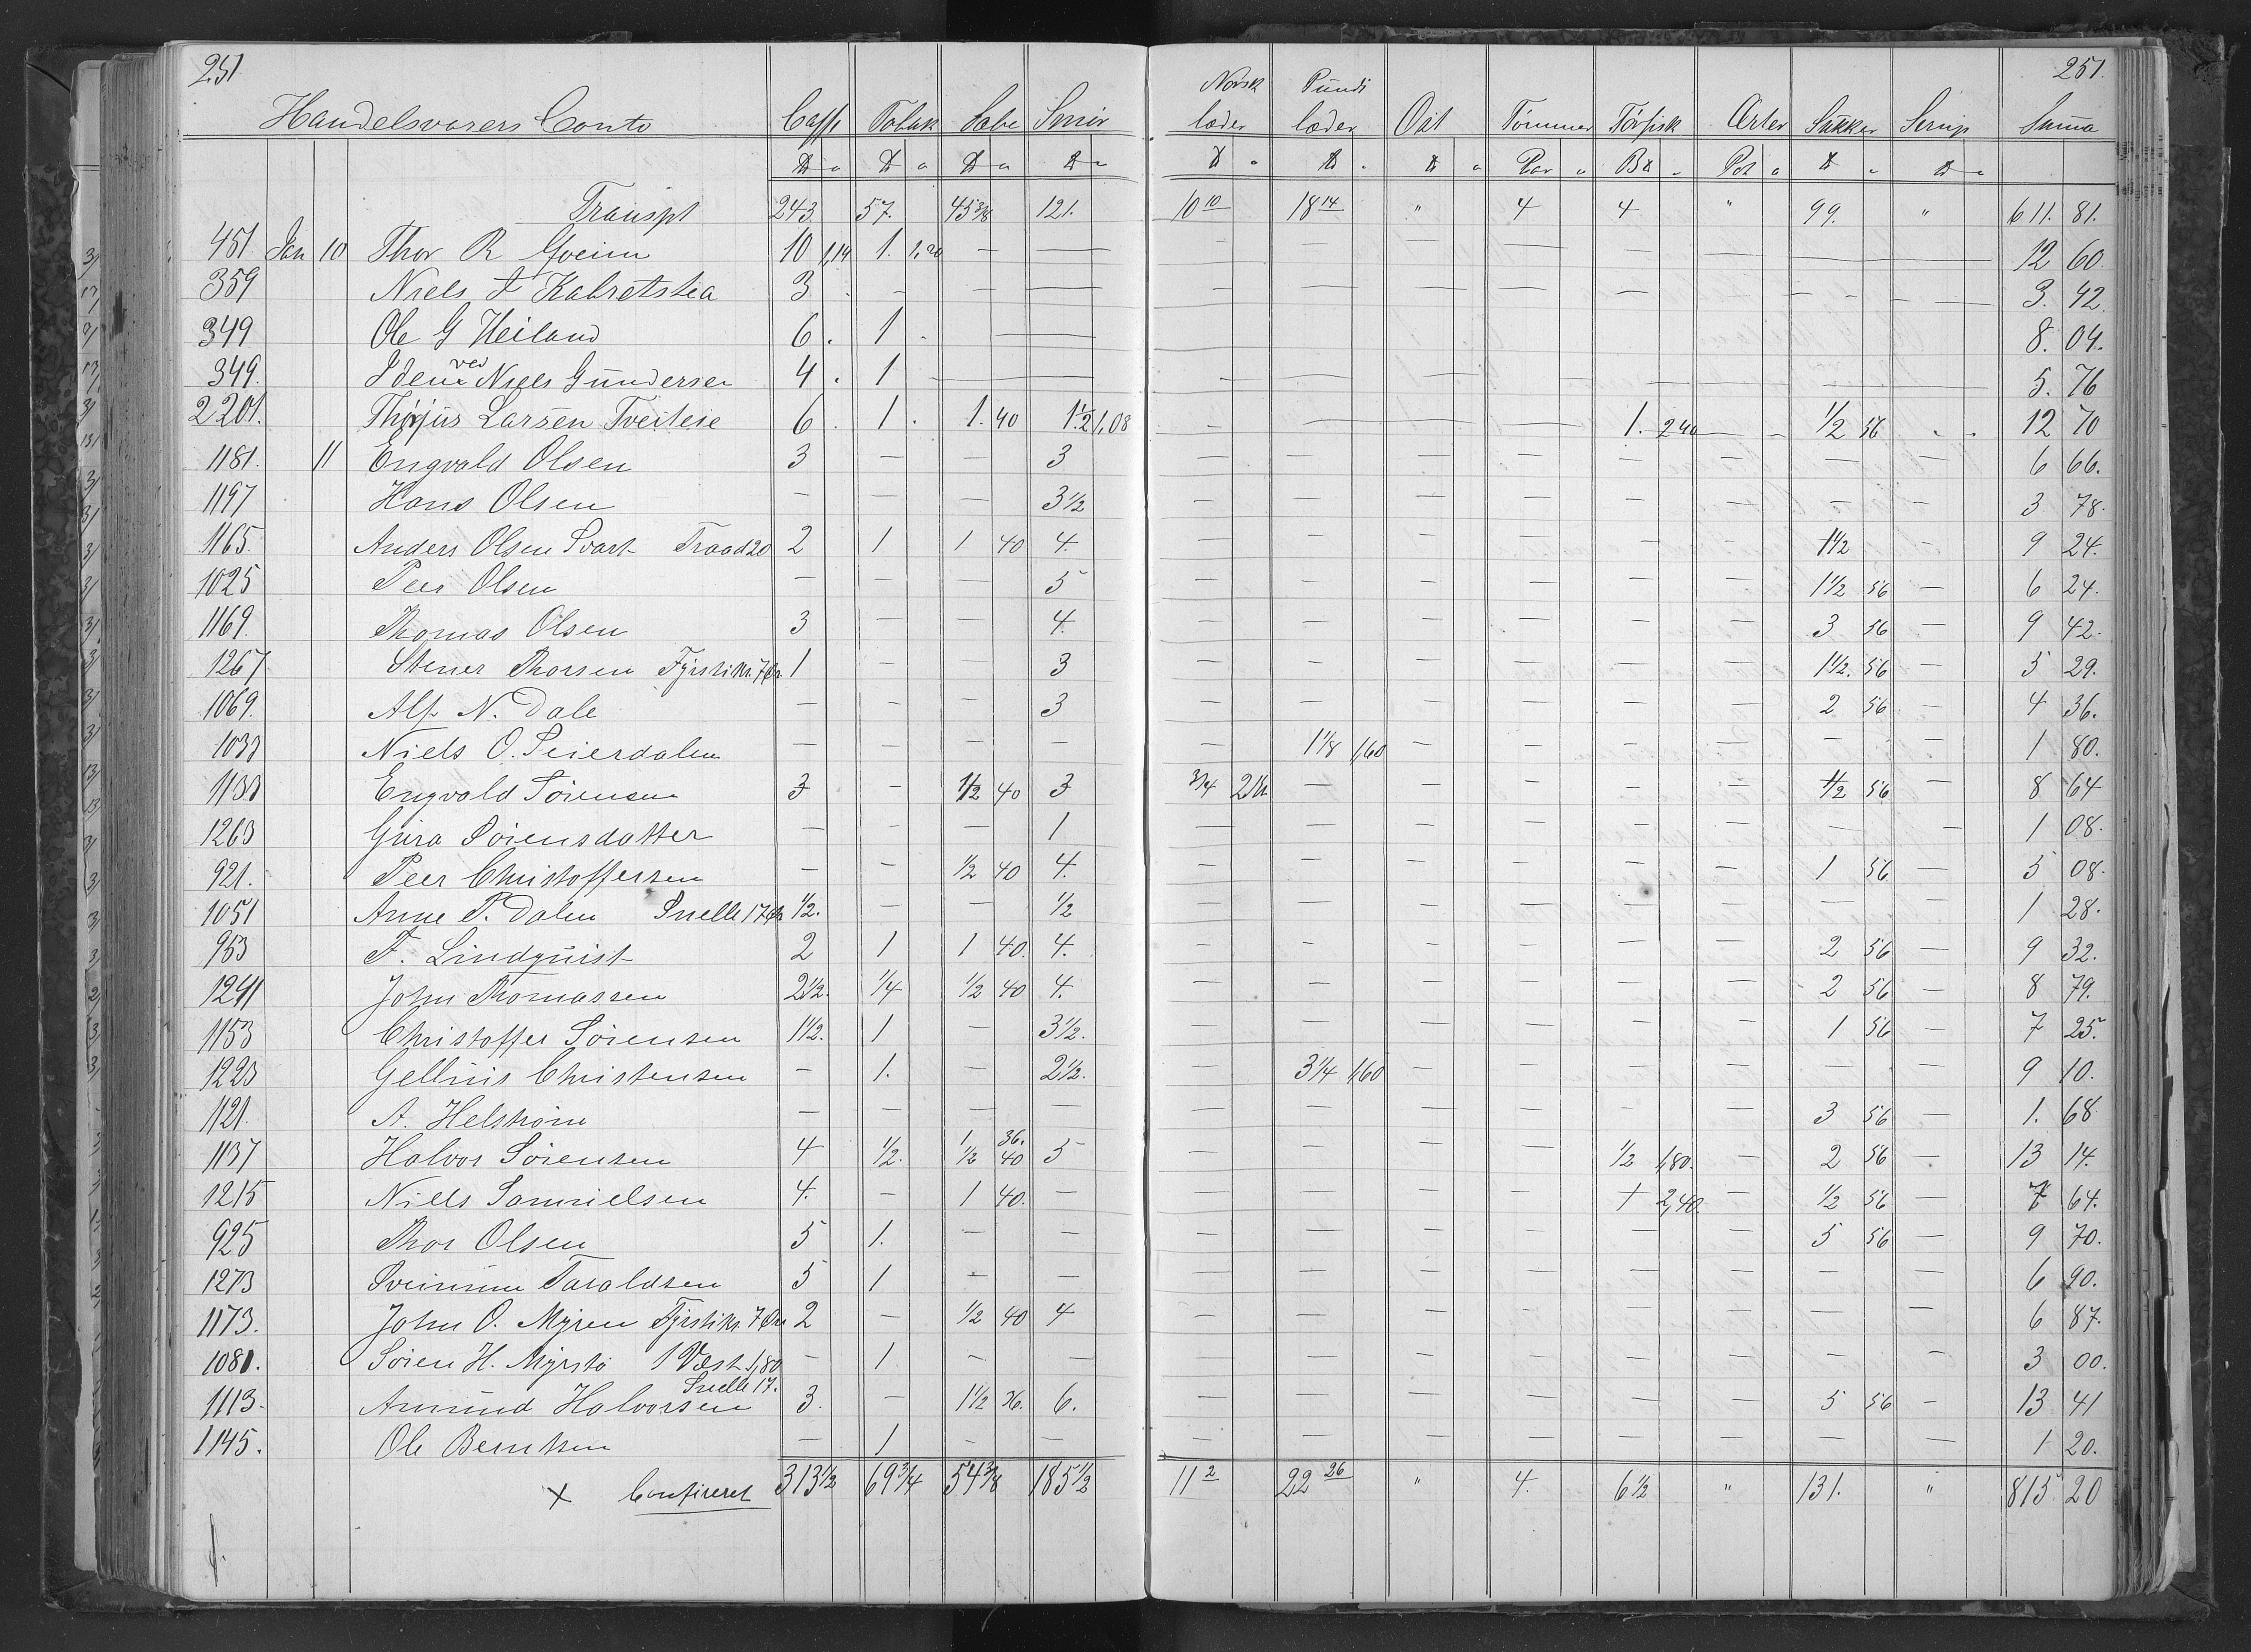 251 251.
Norsk Pundl
Handelsvarers Conto Caffe Tobak Sæbe Smør læder læder Ost Tømmer Tørfisk Erter Sukker Sirup Summa
Par Pot
Transpt 243 57. 45 3/8 121. 10 10 18 14 " 4 4 " 99. " 611. 81.
451. Jan 10 Thor R 10 1,14 1. 1,20 — — — — — — — — 12 60.
359 Niels J Kabretstea 3 . — — — — — — — — — — — 3. 42
349 Ole G Heiland 6 . 1 . — 8. 04.
349. Idem ved Niels Gundersen 4 . 1 — — — — — — — — 5. 76
2201. Larsen Tveitese 6 . 1 . 1. 40 1 1/2 1,08 — — — — 1. 240 — — 1/2 56 - - 12 70
1181. 11 Engvald Olsen 3 — — 3 — — — — — — — — 6 66.
1197 Hans Olsen — — — 3 1/2 — — — — — — — — 3 78.
1165. Anders Olsen Svart Traad 20 2 1 1 40 4. — — — — — — 1 1/2 — 9 24.
1025 Peer Olsen — — — 5 — — — — — — 1 1/2 56 — 6 24.
1169. Thomas Olsen 3 — — 4. — — — — — — 3 56 — 9 42.
1267 Stener Thorsen Fyrstikr. 7 Ør 1 — — 3 — — — — — — 1 1/2. 56 — 5 29.
1069. Alf N. Dale — — — 3 — — — — — — 2 56 — 4 36.
1033 Niels O. Seierdalen — — — — — 1 1/8 1,60 — — — — — — 1 80.
1133 Engvald Sørensen 3 — 1/2 40 3 3/4 2 — — — — — 1/2 56 — 8 64
1263 Gura Sørensdatter — — — 1 — — — — — — — — 1 08.
921. Peer Christoffersen — — 1/2 40 4. — — — — — — 1 56 — 5 08.
1051 Anne P. Dalen Snelle 17 Ør 1/2. — — 1/2 — — — — — — — — 1 28.
953 F. Lindquist 2 1 1 40. 4. — — — — — — 2 56 — 9 32.
1291 John Thomassen 2 1/2. 1/4 1/2 40 4. — — — — — — 2 56 — 8 79.
1153 Christoffer Sørensen 1 1/2. 1 — 3 1/2. — — — — — — 1 56 — 7 25.
1223 Gellius Christensen — 1. — 2 1/2. — 3 1/4 1,60 — — — — — — 9 10.
1121. A. Helstrøm — — — — — — — — — — 3 56 — 1. 68
1 36.
1137 Halvor Sørensen 4 1/2. 1/2 40 5 — — — — 1/2 1,80. — 2 56 — 13 14.
1215 Niels Samuelsen 4. — 1 40. — — — — — 1 2,40. — 1/2 56 — 7 64.
925 Thor Olsen 5 1. — — — — — — — — 5 56 — 9 70.
1273 Svenum Taraldsen 5 1 — — — — — — — — — — 6 90.
1173. John O. Myren Fyrstikr. 7 Øre 2 — 1/2 40 4 — — — — — — — — 6 87.
1081. Søren H. Myrstø 1 Væst 1,80 — 1 — — — — — — — — — — 3 00.
Snelle 17.
1113. Amund Halvorsen 3. — 1 1/2 36. 6. — — — — — — 5 56 — 13 41
1145. Ole Berntsen — 1 — — — — — — — — — — 1 20.
x Confireret 313 1/2 69 3/4 54 3/8 185 1/2 11 2 22 26 " 4. 6 1/2 " 131. " 815 20